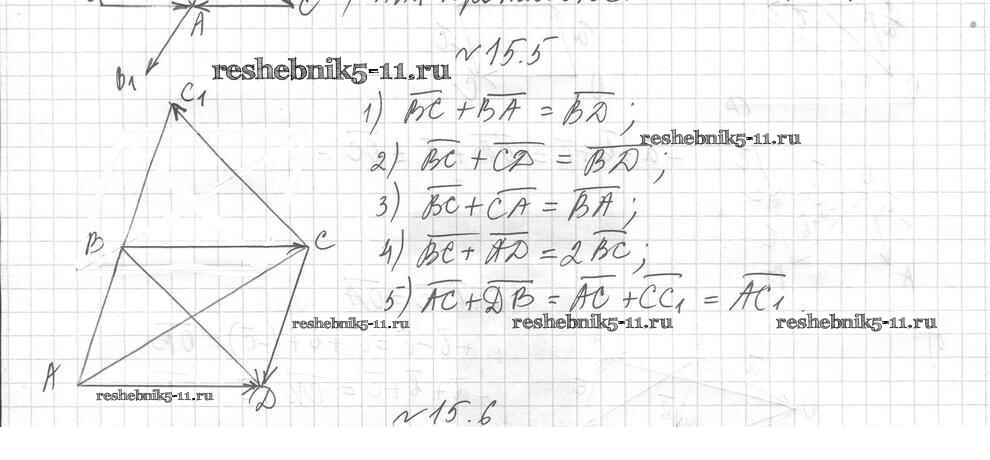 A
C
B1
№15.5
reshebnik5-11.ru
C1
1) BC + BA = BD ;
reshebnik5-11.ru
2) BC + CD = BD ;
3) BC + CA = BA ;
B
C
4) BC + AD = 2 BC ;
5) AC + DB = AC + CC1 = AC1
reshebnik5-11.ru
reshebnik5-11.ru
reshebnik5-11.ru
A
reshebnik5-11.ru
D
№15.6